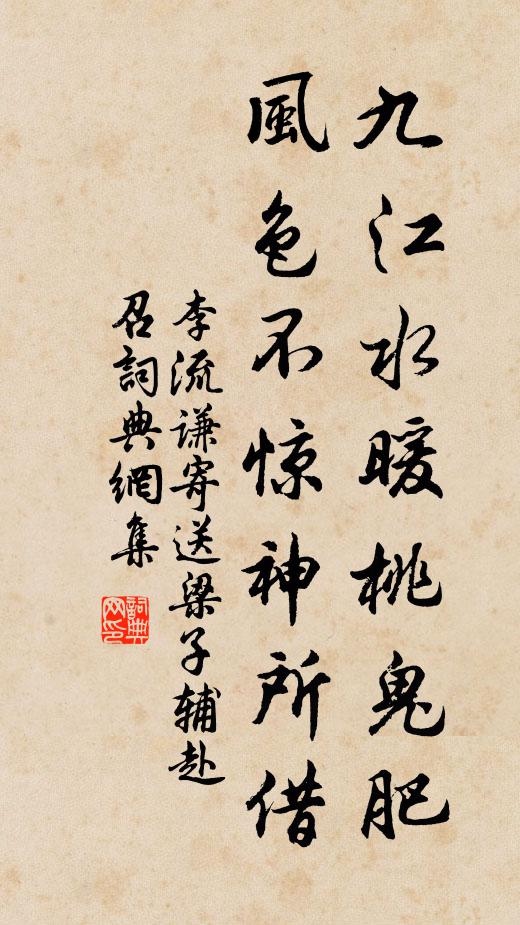 九江水暖桃鬼肥
風色不惊神所借
李流谦寄送梁子辅赴
召詞典網集
詞典网印